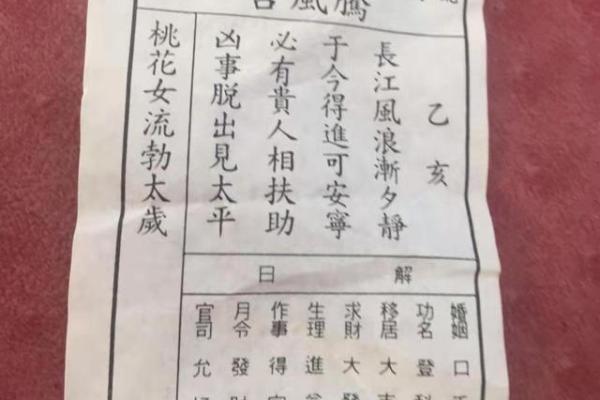 騰風
乙亥
長江風浪漸夕靜
于今得進可安寧
必有貴人相扶助
凶事脫出見太平
桃花女流勃太歲
解日
婚姻口
功名登科
移居大
求財大發
生理進
作事得
月令發財
官司允